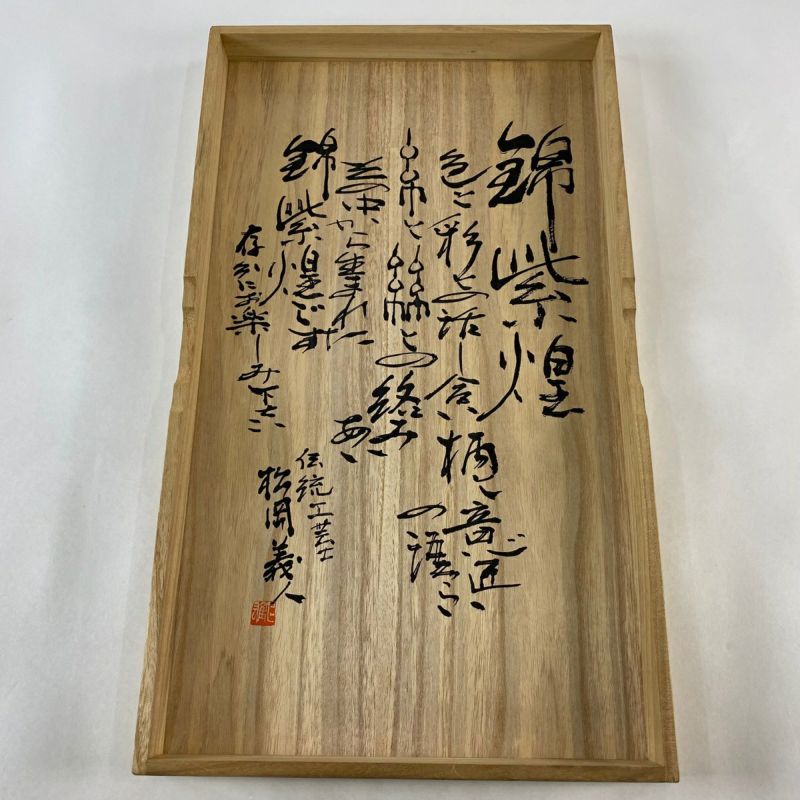 錦紫煌
色と彩との話し合い
柄と意匠と
の語らい
糸と絲との絡み
あい
その中から生まれた
錦紫煌です
存分にお楽しみ下さい
伝統工芸士
松岡義人